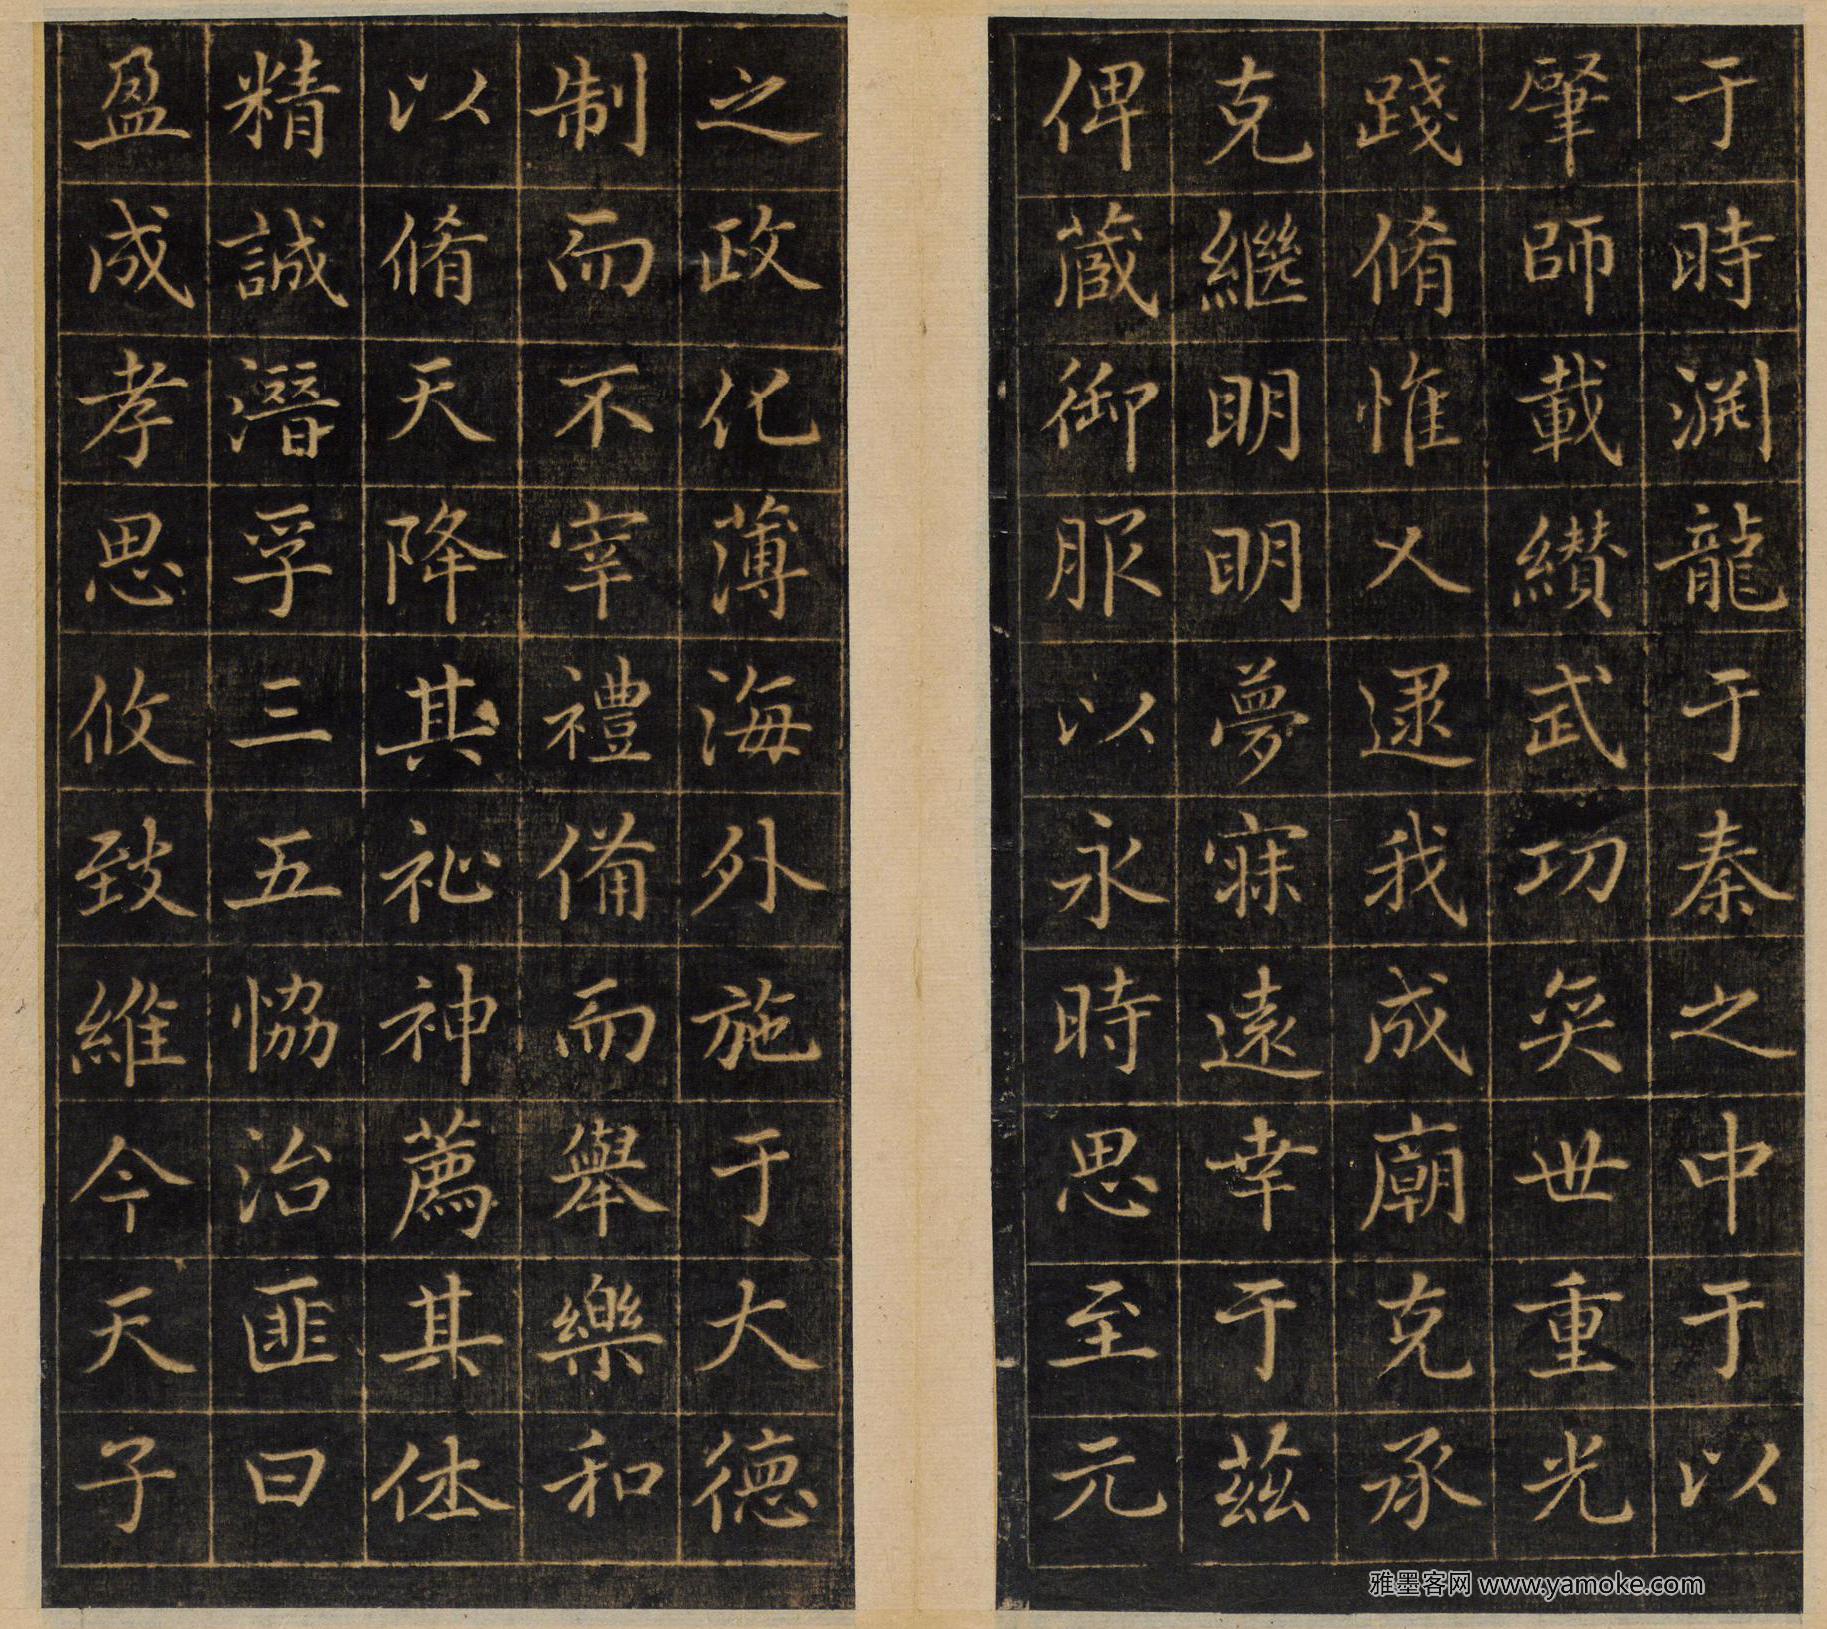 于時渕龍于秦之中于以
肇師載纘武功奕世重光
踐脩惟乂逮我成廟克承
克繼明明夢寐遠幸于茲
俾蕆御服以永時思至元
之政化薄海外施于大德
制而不宰禮備而舉樂和
以脩天降其祉神薦其休
精誠潛孚三五恊治匪曰
盈成孝思攸致維今天子
雅墨客网 www.yamoke.com